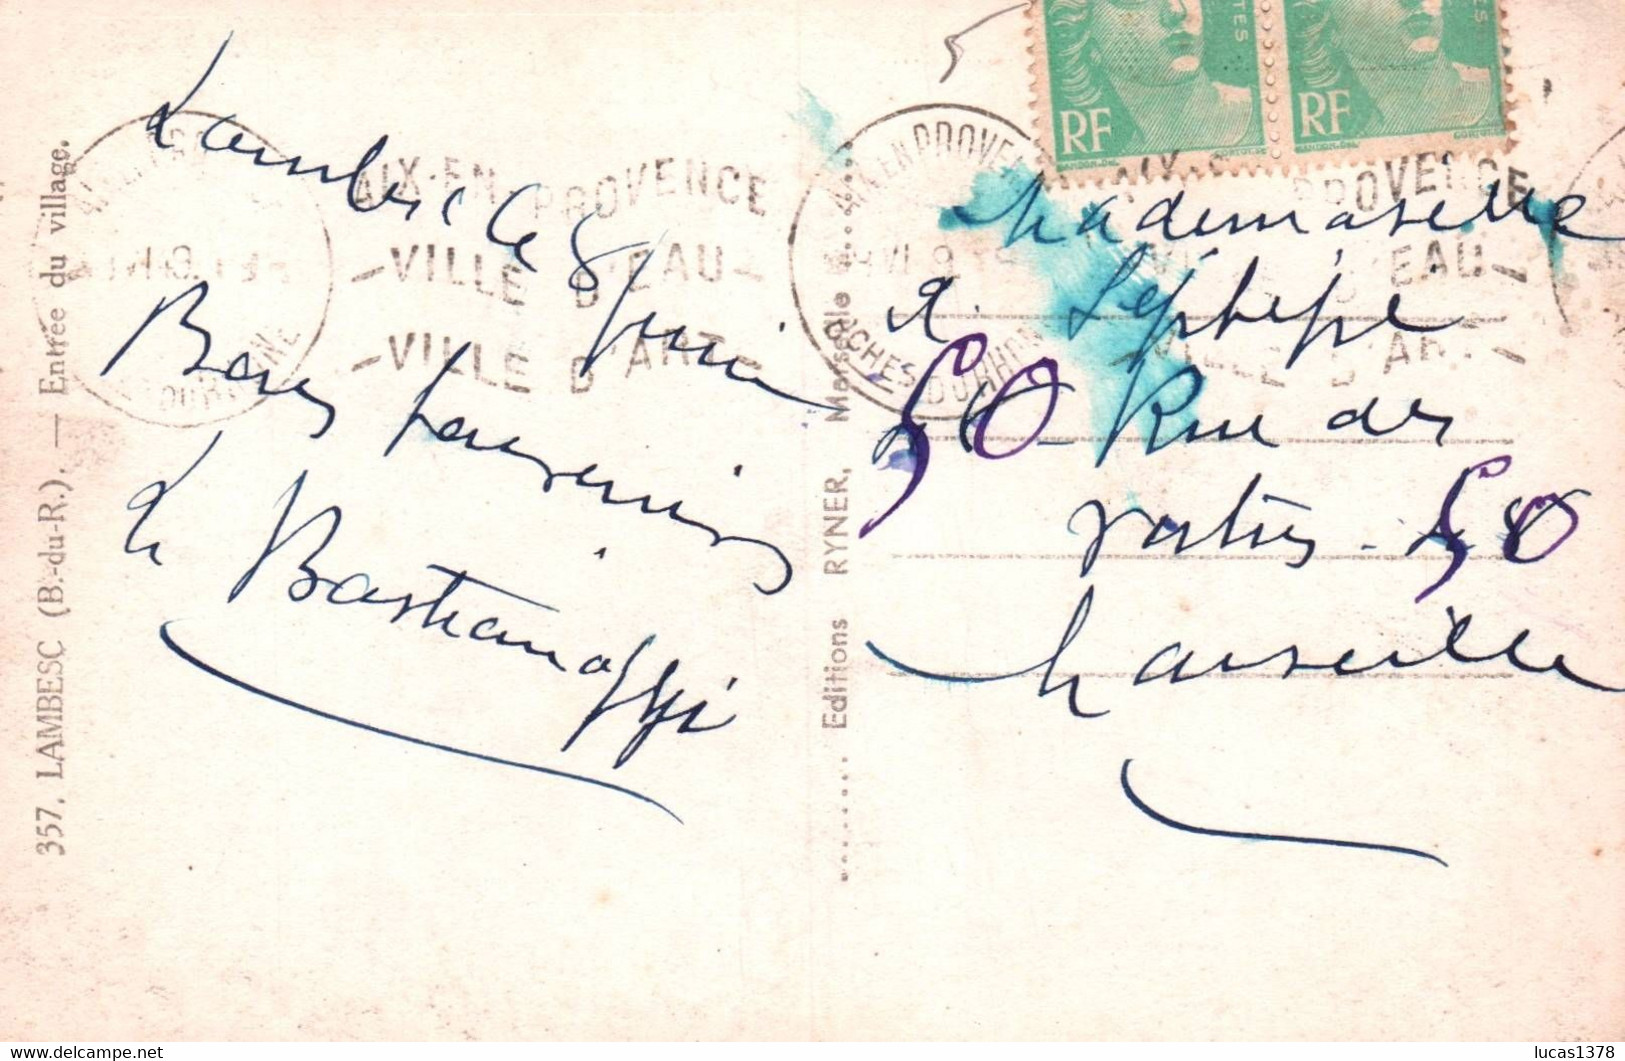 357. LAMBESC (B.-du-R.). — Entrée du village.
Lambesc le 8 Juin
Bons souvenirs
Editions RYNER, Marseille
AIX-EN-PROVENCE
—VILLE D'EAU—
—VILLE D'ART—
AIX EN PROVENCE
BCHES DU RHONE
RF
RF
PROVENCE
D'EAU—
VILLE D'ART
Mademoiselle
50 Rue des
50
Marseille
lucas1378